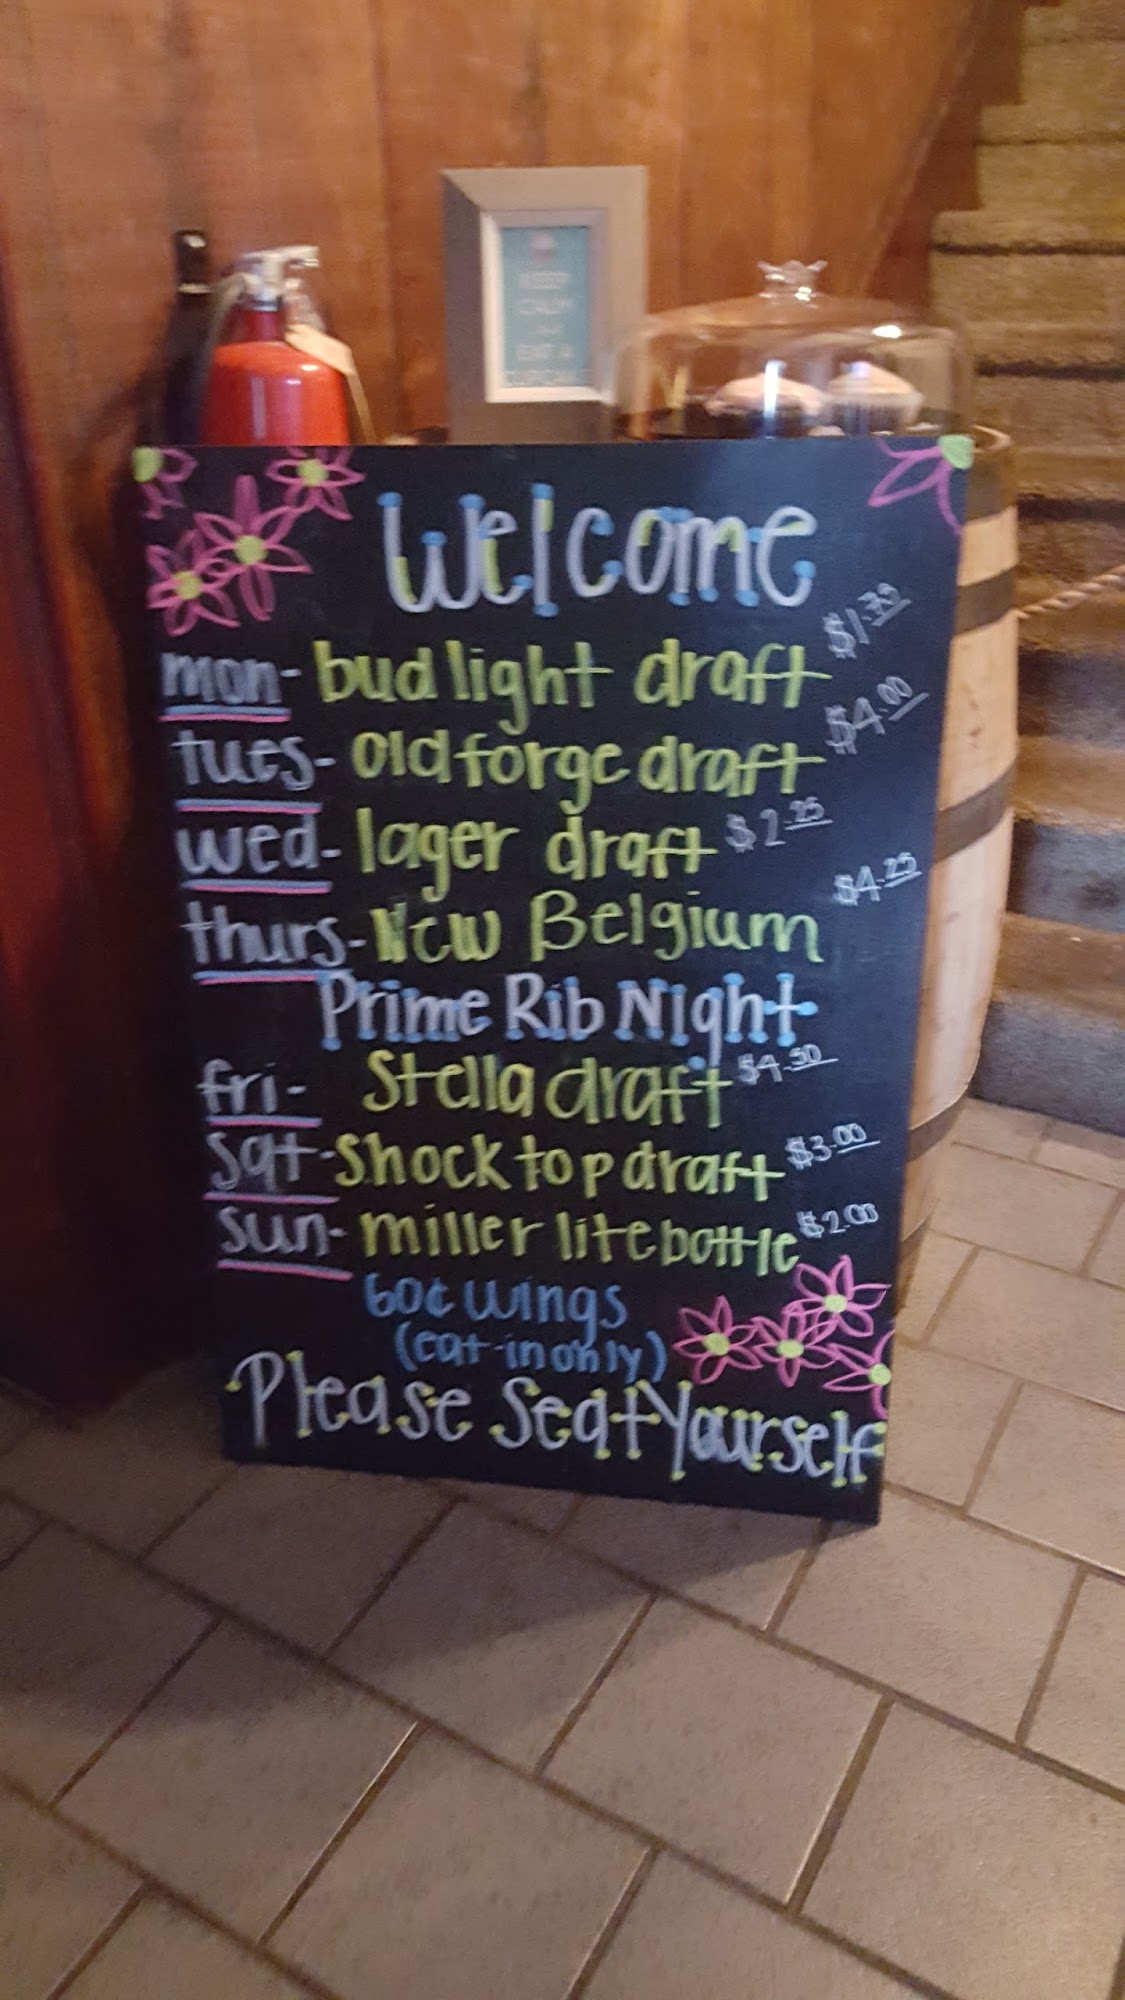 KEEP
CALM
EAT A
Welcome
mon- bud light draft
tues- old forge draft $4.00
wed- lager draft $2.25
thurs- New Belgium $4.25
Prime Rib Night
fri- Stella draft $4.50
sat- shock top draft $3.00
sun- miller lite bottle $2.00
60¢ wings
(eat-in only)
Please Seat Yourself